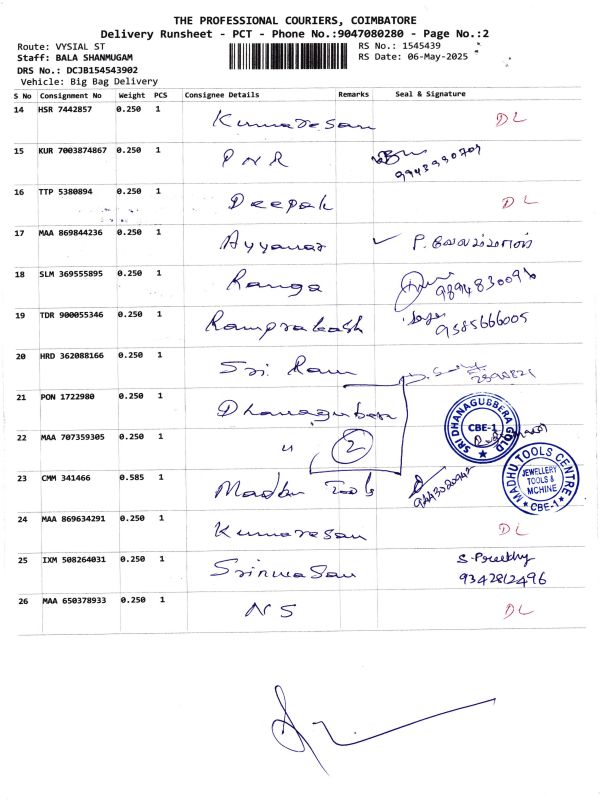 THE PROFESSIONAL COURIERS, COIMBATORE
Delivery Runsheet - PCT - Phone No.:9047080280 - Page No.:2
Route: VYSIAL ST RS No.: 1545439
Staff: BALA SHANMUGAM RS Date: 06-May-2025
DRS No.: DCJB154543902
Vehicle: Big Bag Delivery
S No Consignment No Weight PCS Consignee Details Remarks Seal & Signature
14 HSR 7442857 0.250 1 Kumaresan DL
15 KUR 7003874867 0.250 1 PNR 9943990709
16 TTP 5380894 0.250 1 Deepak DL
17 MAA 869844236 0.250 1 Ayyanar ✓
18 SLM 369555895 0.250 1 Ranga 9894830096
19 TDR 900055346 0.250 1 Ramprakash 9585666005
20 HRD 362088166 0.250 1 Sri Ram
21 PON 1722980 0.250 1 Dhanaguberan SRI DHANAGUBBERA GOLD CBE-1
22 MAA 707359305 0.250 1 " 2
23 CMM 341466 0.585 1 Madhu Tools MADHU TOOLS CENTRE JEWELLERY TOOLS & MCHINE CBE-1
24 MAA 869634291 0.250 1 Kumaresan DL
25 IXM 508264031 0.250 1 Srinivasan S. Preethy
9342812496
26 MAA 650378933 0.250 1 NS DL